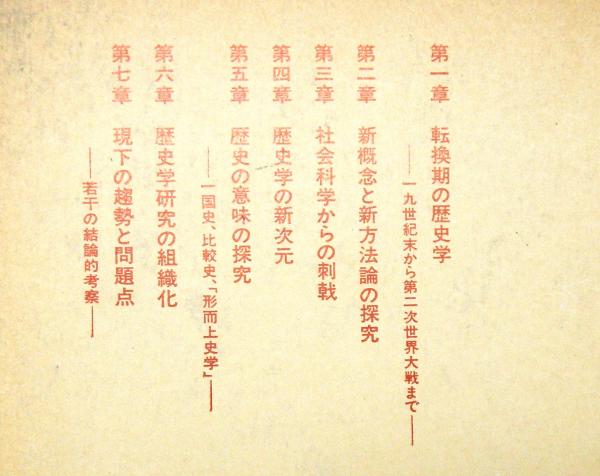 第一章 転換期の歴史学
――一九世紀末から第二次世界大戦まで――
第二章 新概念と新方法論の探究
第三章 社会科学からの刺戟
第四章 歴史学の新次元
第五章 歴史の意味の探究
――一国史、比較史、「形而上史学」――
第六章 歴史学研究の組織化
第七章 現下の趨勢と問題点
――若干の結論的考察――